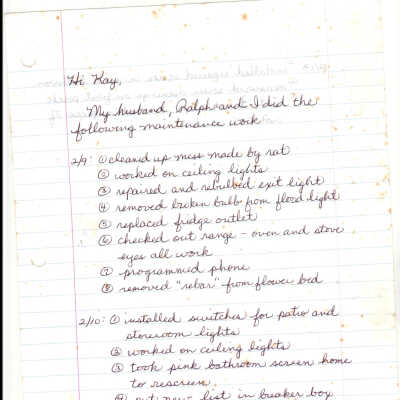 Hi Kay,
My husband, Ralph and I did the
following maintenance work
2/9: ① cleaned up mess made by rat
② worked on ceiling lights
③ repaired and rebulbed exit light
④ removed broken bulb from flood light
⑤ replaced fridge outlet
⑥ checked out range - oven and stove
eyes all work
⑦ programmed phone
⑧ removed "rebar" from flower bed
2/10: ① installed switches for patio and
storeroom lights
② worked on ceiling lights
③ took pink bathroom screen home
to rescreen
④ put new list in breaker box